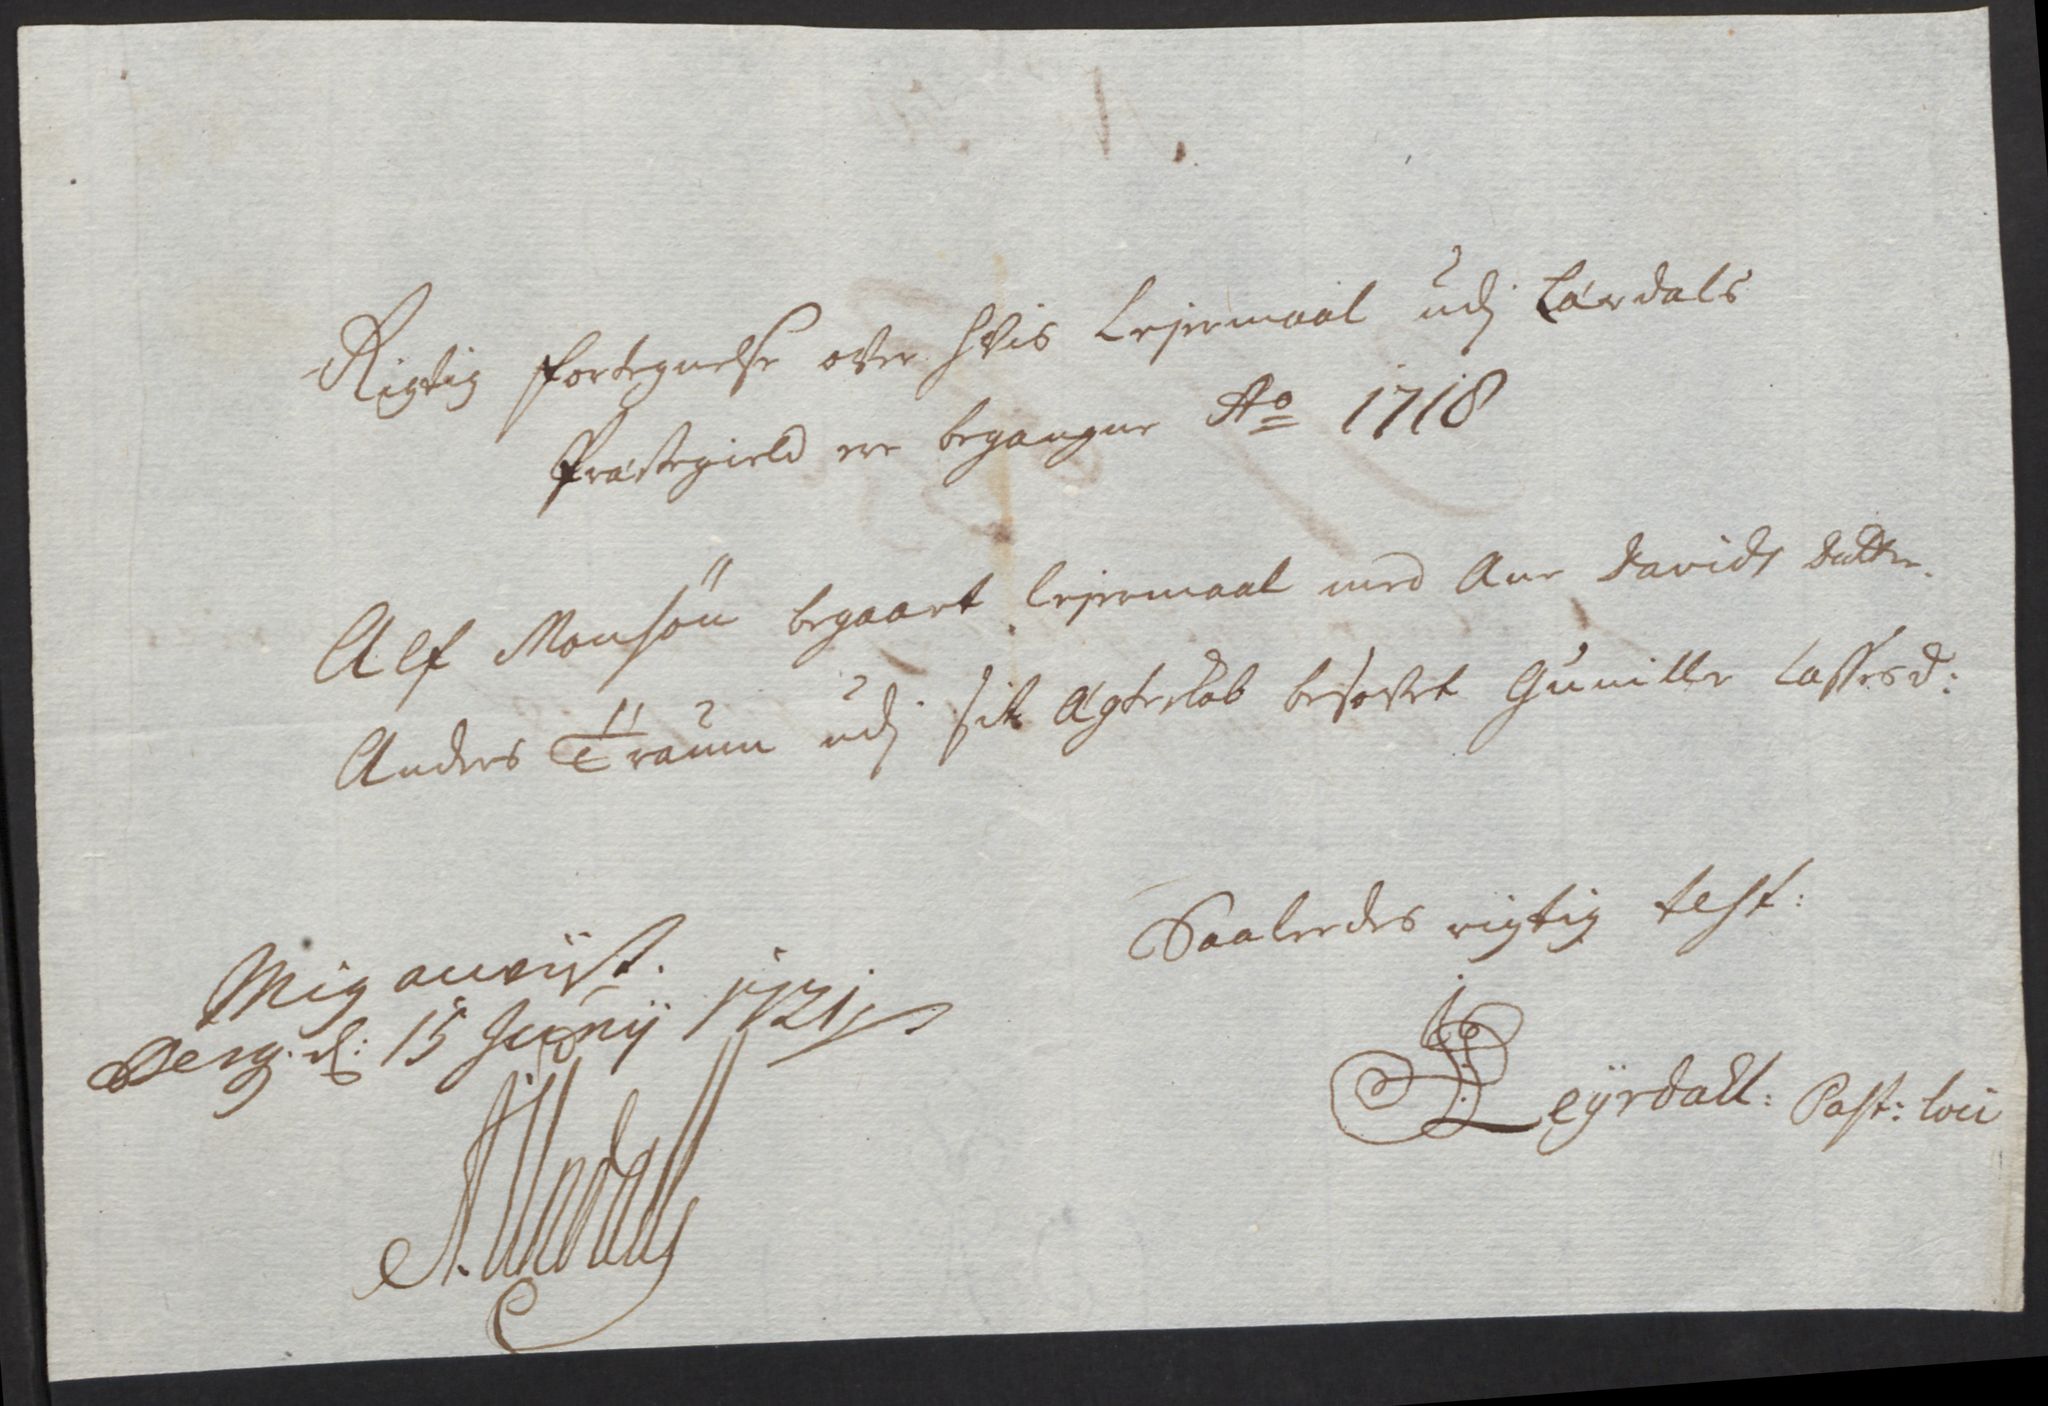 Rigtig fortegnelse over hvis Lejermaal udj Lærdals
Præstegield ere begangne Ao 1718
Alf Monsøn begaaet lejermaal med Ane Davids datter.
Anders Traum udj sit Ægteskab besovet Gunille Lasses d:
Saaleedes rigtig test:
Leÿrdall: Past: loci
Mig anviist.
Berg. d: 15 Junij 1721